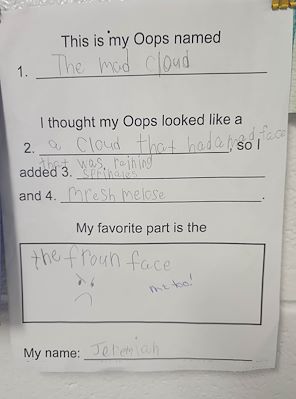 This is my Oops named
1. The mad cloud
I thought my Oops looked like a
2. a cloud that had a mad face, so I
that was raining
added 3. sprinales
and 4. mresh melose.
My favorite part is the
the froun face
me too!
My name: Jeremiah